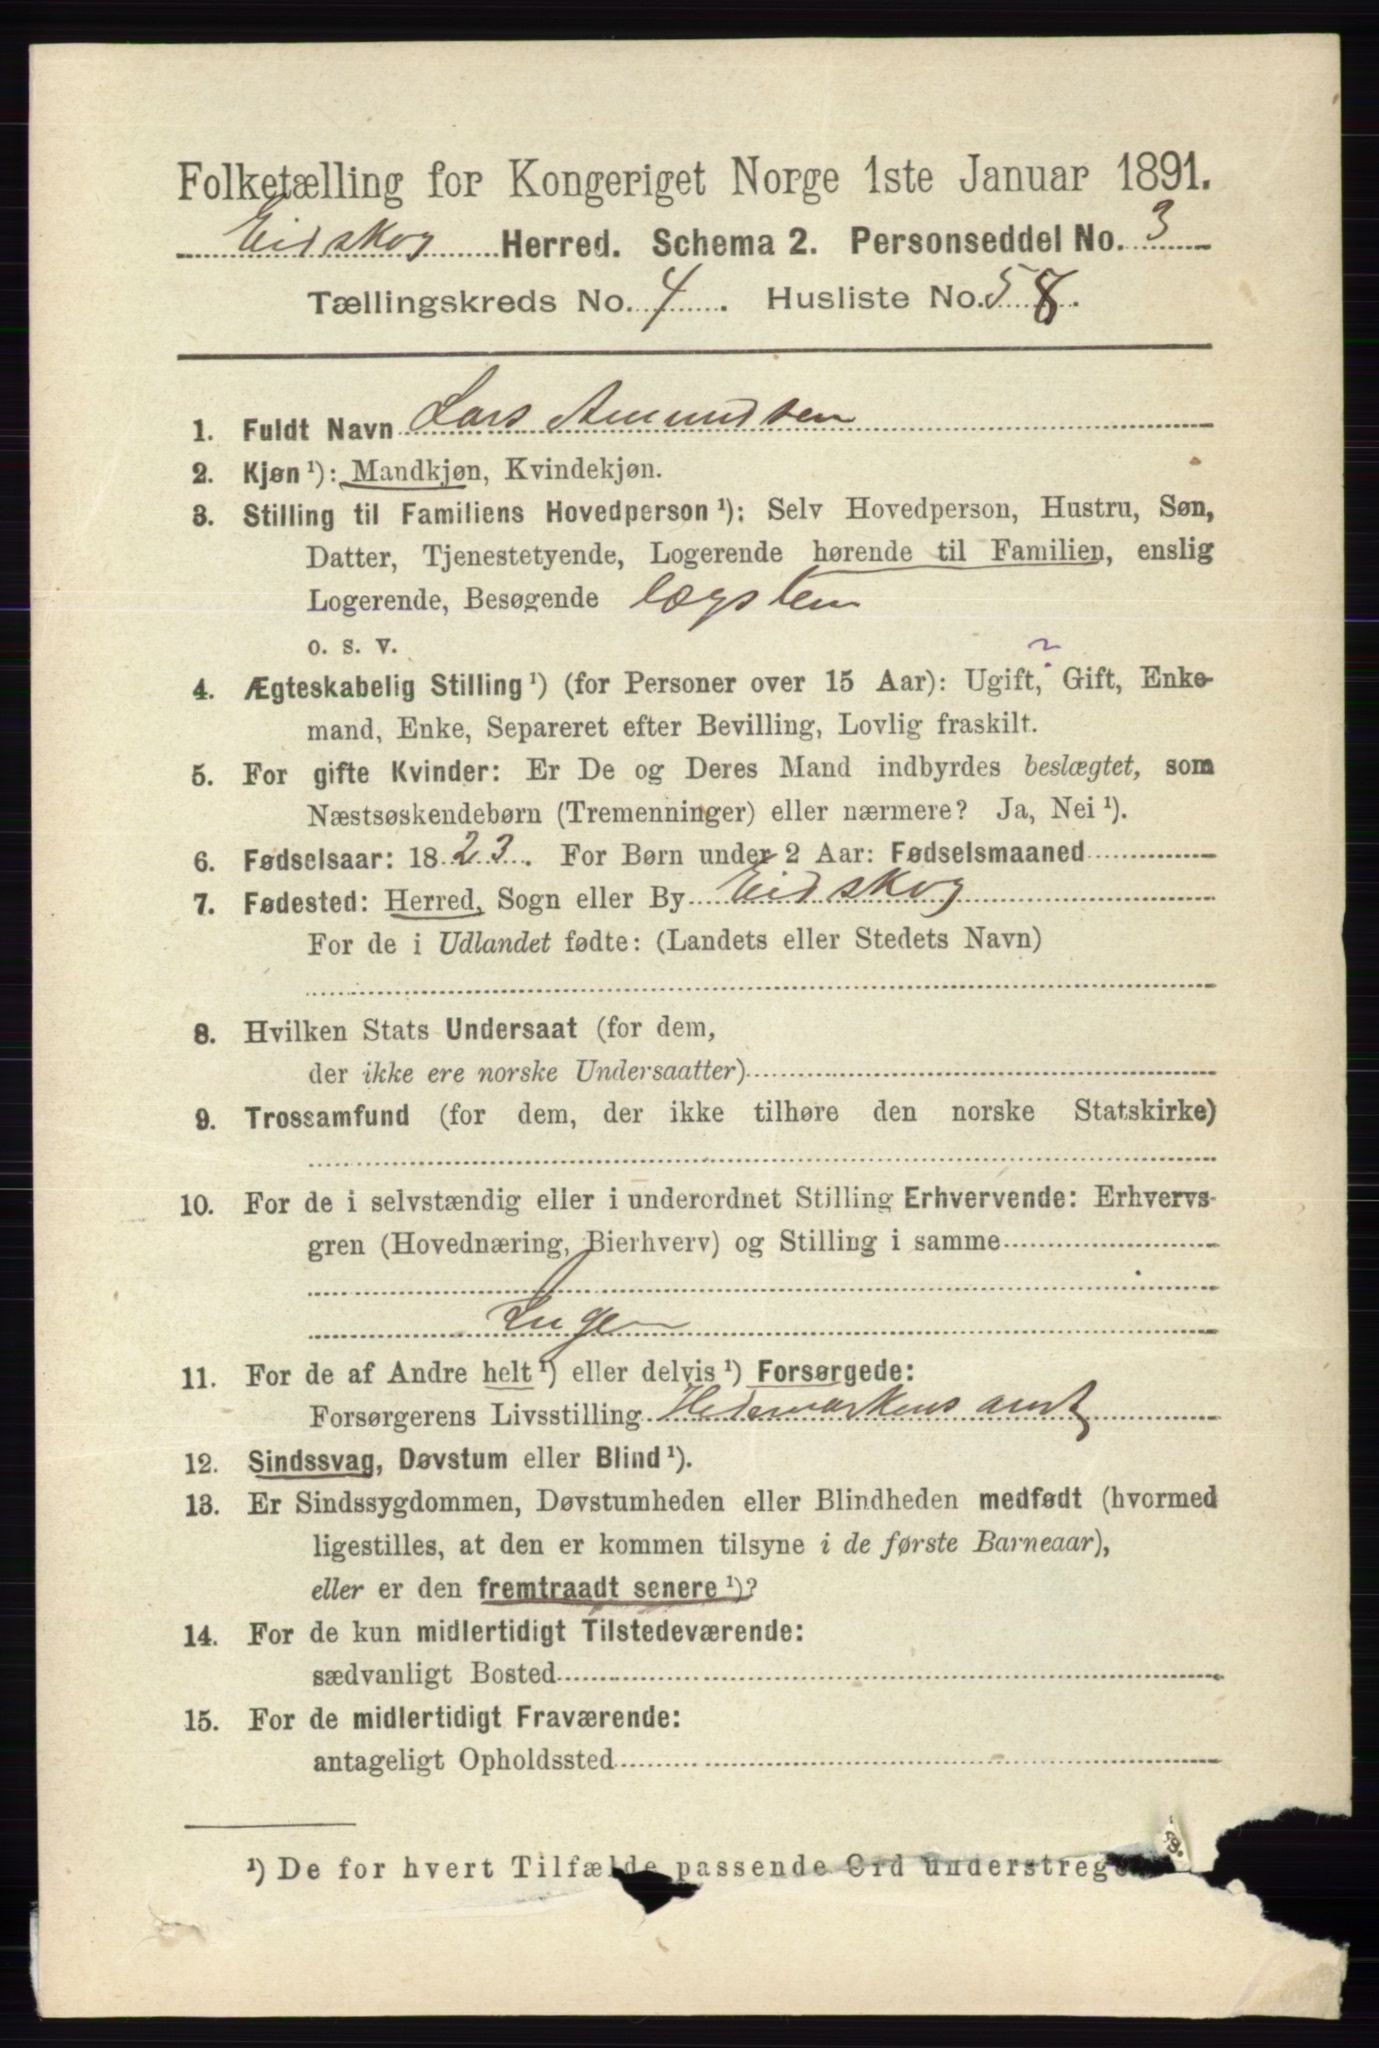 Folketælling for Kongeriget Norge 1ste Januar 1891.
Eidskog Herred. Schema 2. Personseddel No. 3
Tællingskreds No. 4. Husliste No. 58.
1. Fuldt Navn Lars Amundsen
2. Kjøn ¹): Mandkjøn, Kvindekjøn.
3. Stilling til Familiens Hovedperson ¹): Selv Hovedperson, Hustru, Søn,
Datter, Tjenestetyende, Logerende hørende til Familien, enslig
Logerende, Besøgende lægslem
o. s. v.
?
4. Ægteskabelig Stilling ¹) (for Personer over 15 Aar): Ugift, Gift, Enke-
mand, Enke, Separeret efter Bevilling, Lovlig fraskilt.
5. For gifte Kvinder: Er De og Deres Mand indbyrdes beslægtet, som
Næstsøskendebørn (Tremenninger) eller nærmere? Ja, Nei ¹).
6. Fødselsaar: 1823. For Børn under 2 Aar: Fødselsmaaned
7. Fødested: Herred, Sogn eller By Eidskog
For de i Udlandet fødte: (Landets eller Stedets Navn)
8. Hvilken Stats Undersaat (for dem,
der ikke ere norske Undersaatter)
9. Trossamfund (for dem, der ikke tilhøre den norske Statskirke)
10. For de i selvstændig eller i underordnet Stilling Erhvervende: Erhvervs-
gren (Hovednæring, Bierhverv) og Stilling i samme
Ingen
11. For de af Andre helt ¹) eller delvis ¹) Forsørgede:
Forsørgerens Livsstilling Hedemarkens amt
12. Sindssvag, Døvstum eller Blind ¹).
13. Er Sindssygdommen, Døvstumheden eller Blindheden medfødt (hvormed
ligestilles, at den er kommen tilsyne i de første Barneaar),
eller er den fremtraadt senere ¹)?
14. For de kun midlertidigt Tilstedeværende:
sædvanligt Bosted
15. For de midlertidigt Fraværende:
antageligt Opholdssted
¹) De for hvert Tilfælde passende Ord understreges.